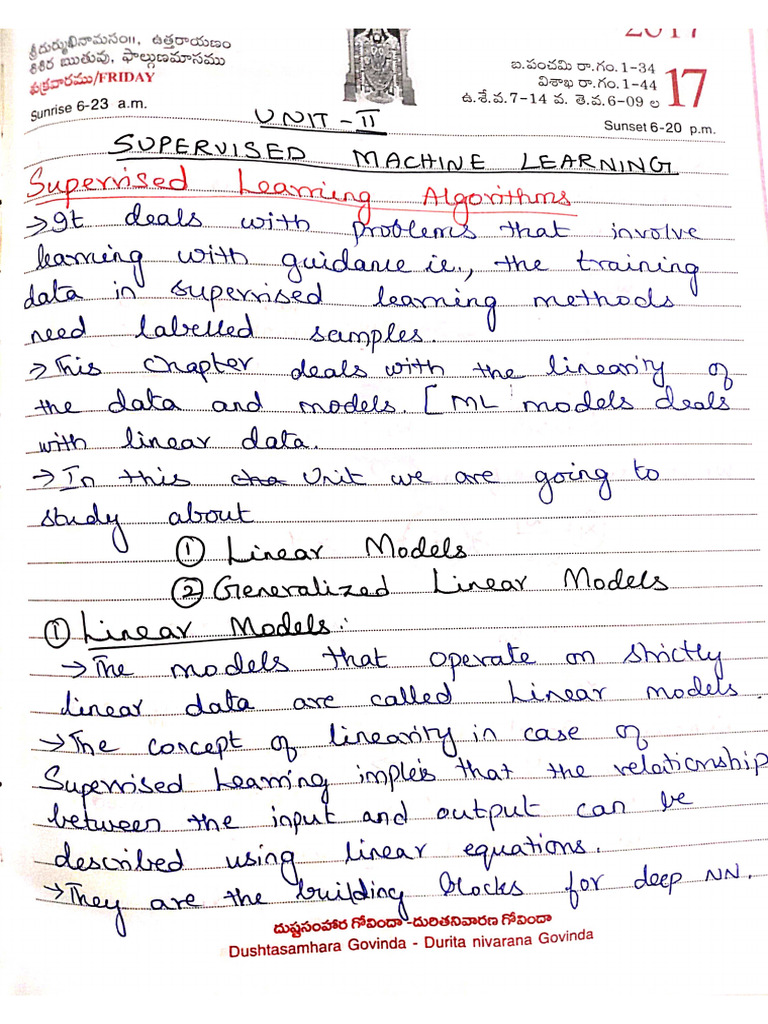 2017
శ్రీదుర్ముఖినామసం॥, ఉత్తరాయణం
శిశిర ఋతువు, ఫాల్గుణమాసము
శుక్రవారము/FRIDAY
Sunrise 6-23 a.m.
బ.పంచమి రా.గం.1-34
విశాఖ రా.గం.1-44
ఉ.శే.వ.7-14 వ. తె.వ.6-09 ల
17
Sunset 6-20 p.m.
UNIT-II
SUPERVISED MACHINE LEARNING
Supervised Learning Algorithms
→It deals with problems that involve
learning with guidance ie., the training
data in supervised learning methods
need labelled samples.
→This chapter deals with the linearity of
the data and models. [ML models deals
with linear data.
→In this cha Unit we are going to
study about
① Linear Models
② Generalized Linear Models
① Linear Models:
→The models that operate on strictly
linear data are called Linear models.
→The concept of linearity in case of
Supervised Learning implies that the relationship
between the input and output can be
described using linear equations.
→They are the building blocks for deep NN.
దుష్టసంహార గోవిందా -దురితనివారణ గోవిందా
Dushtasamhara Govinda - Durita nivarana Govinda